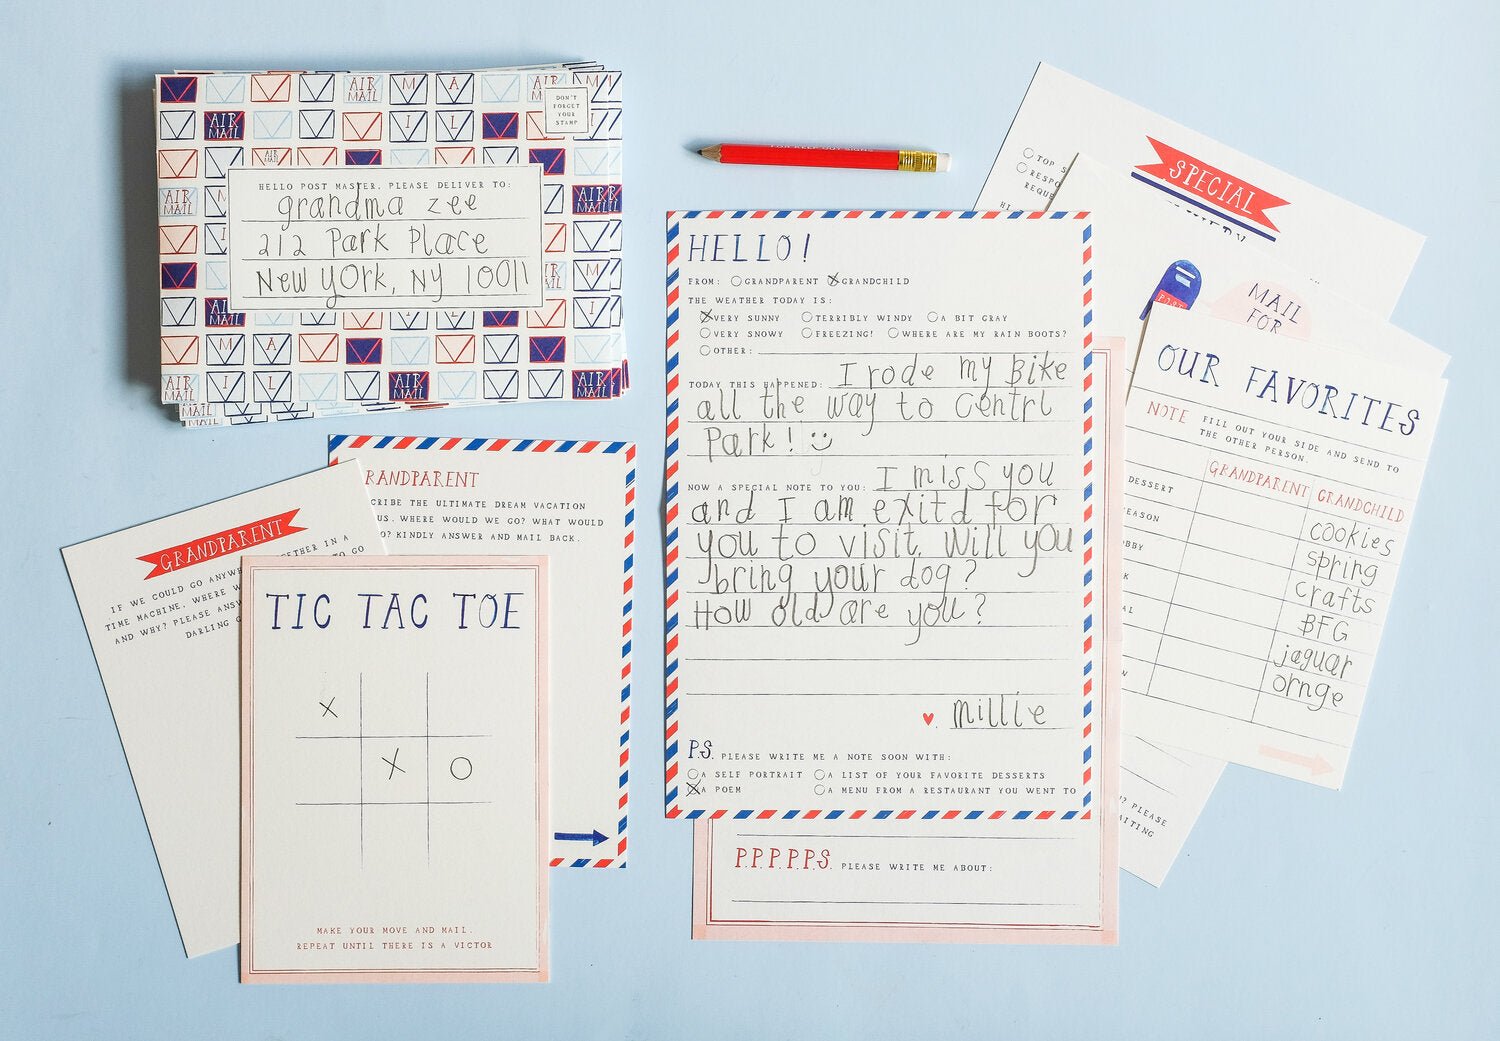 DON'T
FORGET
YOUR
STAMP
AIR
MAIL
HELLO POST MASTER, PLEASE DELIVER TO:
grandma zee
212 Park Place
New York, NY 10011
FOR KEEP OUT SIGNS
HELLO!
FROM: GRANDPARENT GRANDCHILD
THE WEATHER TODAY IS:
VERY SUNNY TERRIBLY WINDY A BIT GRAY
VERY SNOWY FREEZING! WHERE ARE MY RAIN BOOTS?
OTHER:
TODAY THIS HAPPENED: I rode my Bike
all the way to Centrl
Park! :)
NOW A SPECIAL NOTE TO YOU: I miss you
and I am exitd for
you to visit. Will you
bring your dog?
How old are you?
♥ Millie
P.S. PLEASE WRITE ME A NOTE SOON WITH:
A SELF PORTRAIT A LIST OF YOUR FAVORITE DESSERTS
A POEM A MENU FROM A RESTAURANT YOU WENT TO
P.P.P.P.P.S. PLEASE WRITE ME ABOUT:
SPECIAL
TOP
MAIL
FOR
OUR FAVORITES
NOTE FILL OUT YOUR SIDE AND SEND TO
THE OTHER PERSON.
GRANDPARENT GRANDCHILD
DESSERT cookies
spring
crafts
BFG
jaguar
ornge
? PLEASE
GRANDPARENT
IF WE COULD GO
TIME MACHINE, WHERE
AND WHY? PLEASE
DARLING
IN A
TO GO
THE ULTIMATE DREAM VACATION
US. WHERE WOULD WE GO? WHAT WOULD
? KINDLY ANSWER AND MAIL BACK.
TIC TAC TOE
X
X O
MAKE YOUR MOVE AND MAIL.
REPEAT UNTIL THERE IS A VICTOR